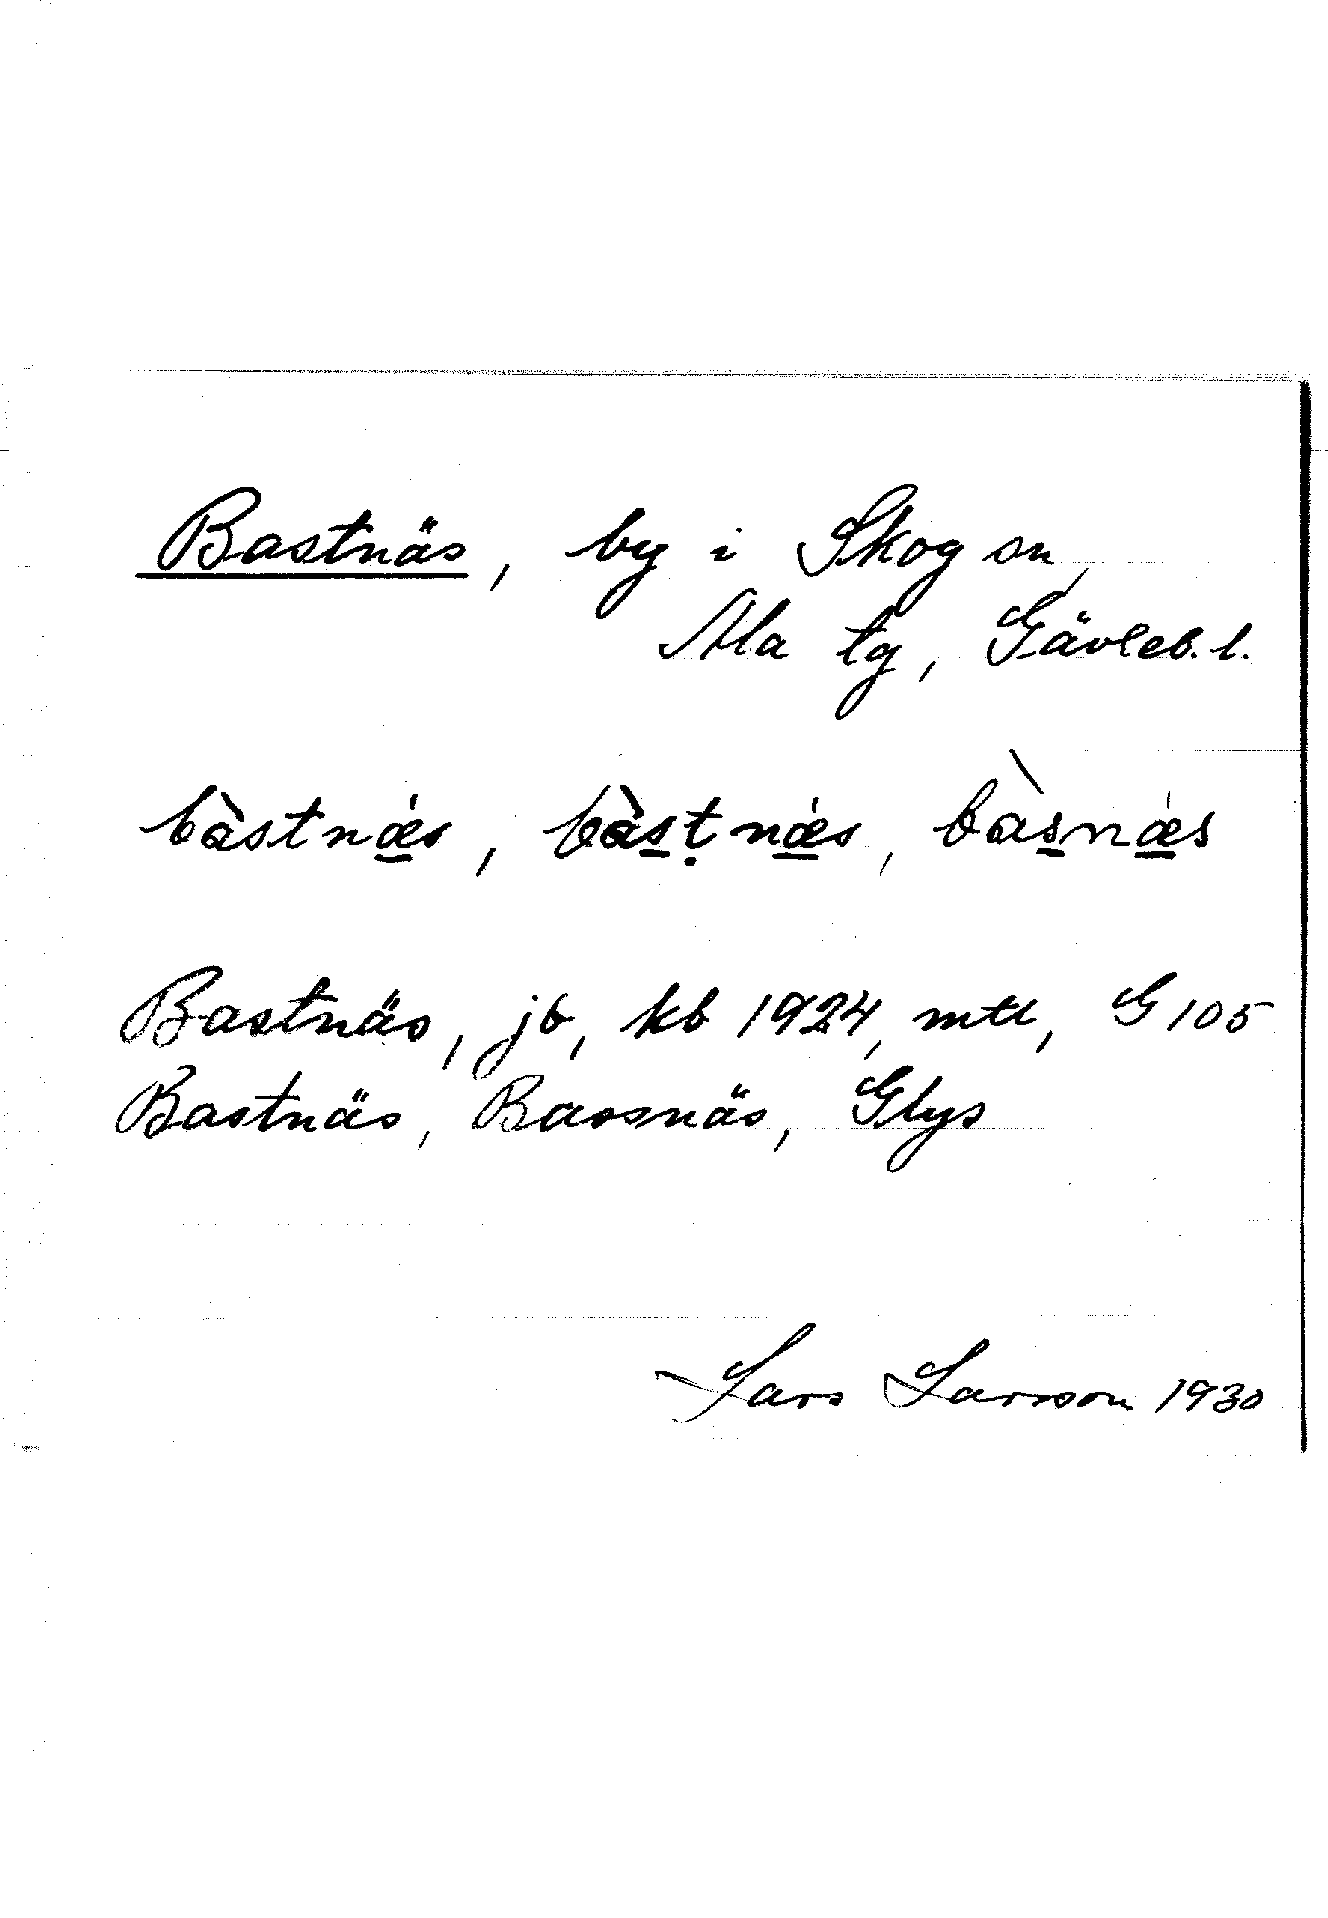 Bastnäs, by i Skog sn,
Ala tg, Gävleb. l.
bàstnæ̲´s, bàs̲ṭnæ̲´s, bàs̲næ̲´s
Bastnäs, jb, kb 1924, mtl, G 105
Bastnäs, Bassnäs, Glys
Lars Larsson 1930